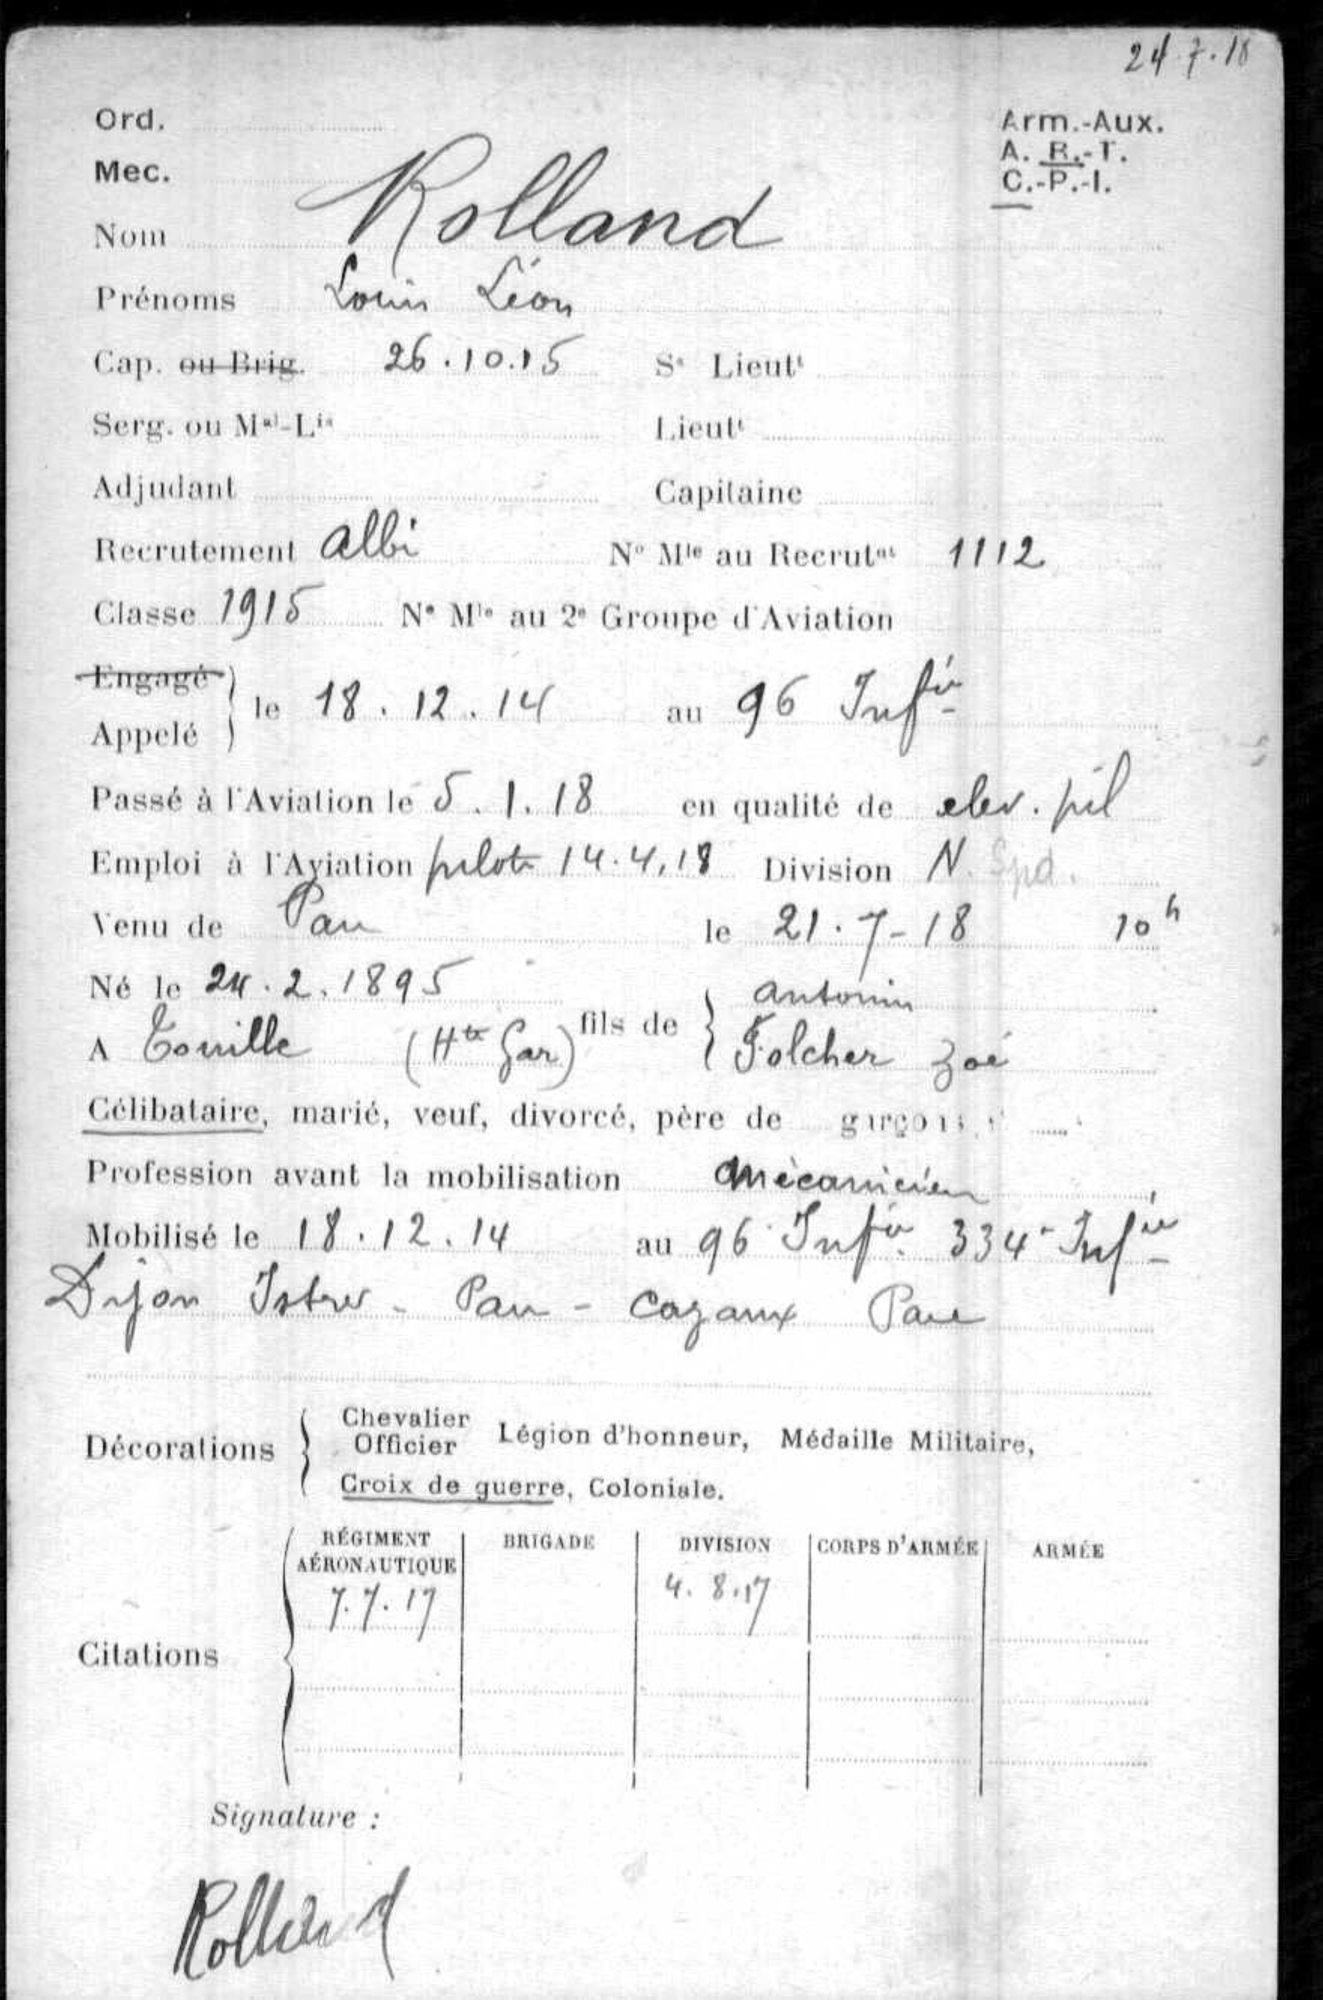 24.7.18
Ord.
Arm.-Aux.
Mec.
A. R.-T.
C.-P.-I.
Nom Rolland
Prénoms Louis Léon
Cap. ou Brig. 26.10.15 Ss Lieutt
Serg. ou Mal-Lis Lieutt
Adjudant Capitaine
Recrutement Albi No Mle au Recrutnt 1112
Classe 1915 No Mle au 2e Groupe d'Aviation
Engagé
Appelé } le 18.12.14 au 96 Infie
Passé à l'Aviation le 5.1.18 en qualité de elev. pil
Emploi à l'Aviation pilote 14.4.18 Division N. Spd.
Venu de Pau le 21.7-18 10h
Né le 24.2.1895 fils de { Antonin
A Touille (Hte Gar) Folcher Zoé
Célibataire, marié, veuf, divorcé, père de garçons
Profession avant la mobilisation Mécanicien
Mobilisé le 18.12.14 au 96 Infie. 334e Infie
Dijon Istres - Pau - Cazaux Pau
Décorations { Chevalier Officier Légion d'honneur, Médaille Militaire,
Croix de guerre, Coloniale.
Citations { RÉGIMENT AÉRONAUTIQUE BRIGADE DIVISION CORPS D'ARMÉE ARMÉE
7.7.17 4.8.17
Signature :
Rolland